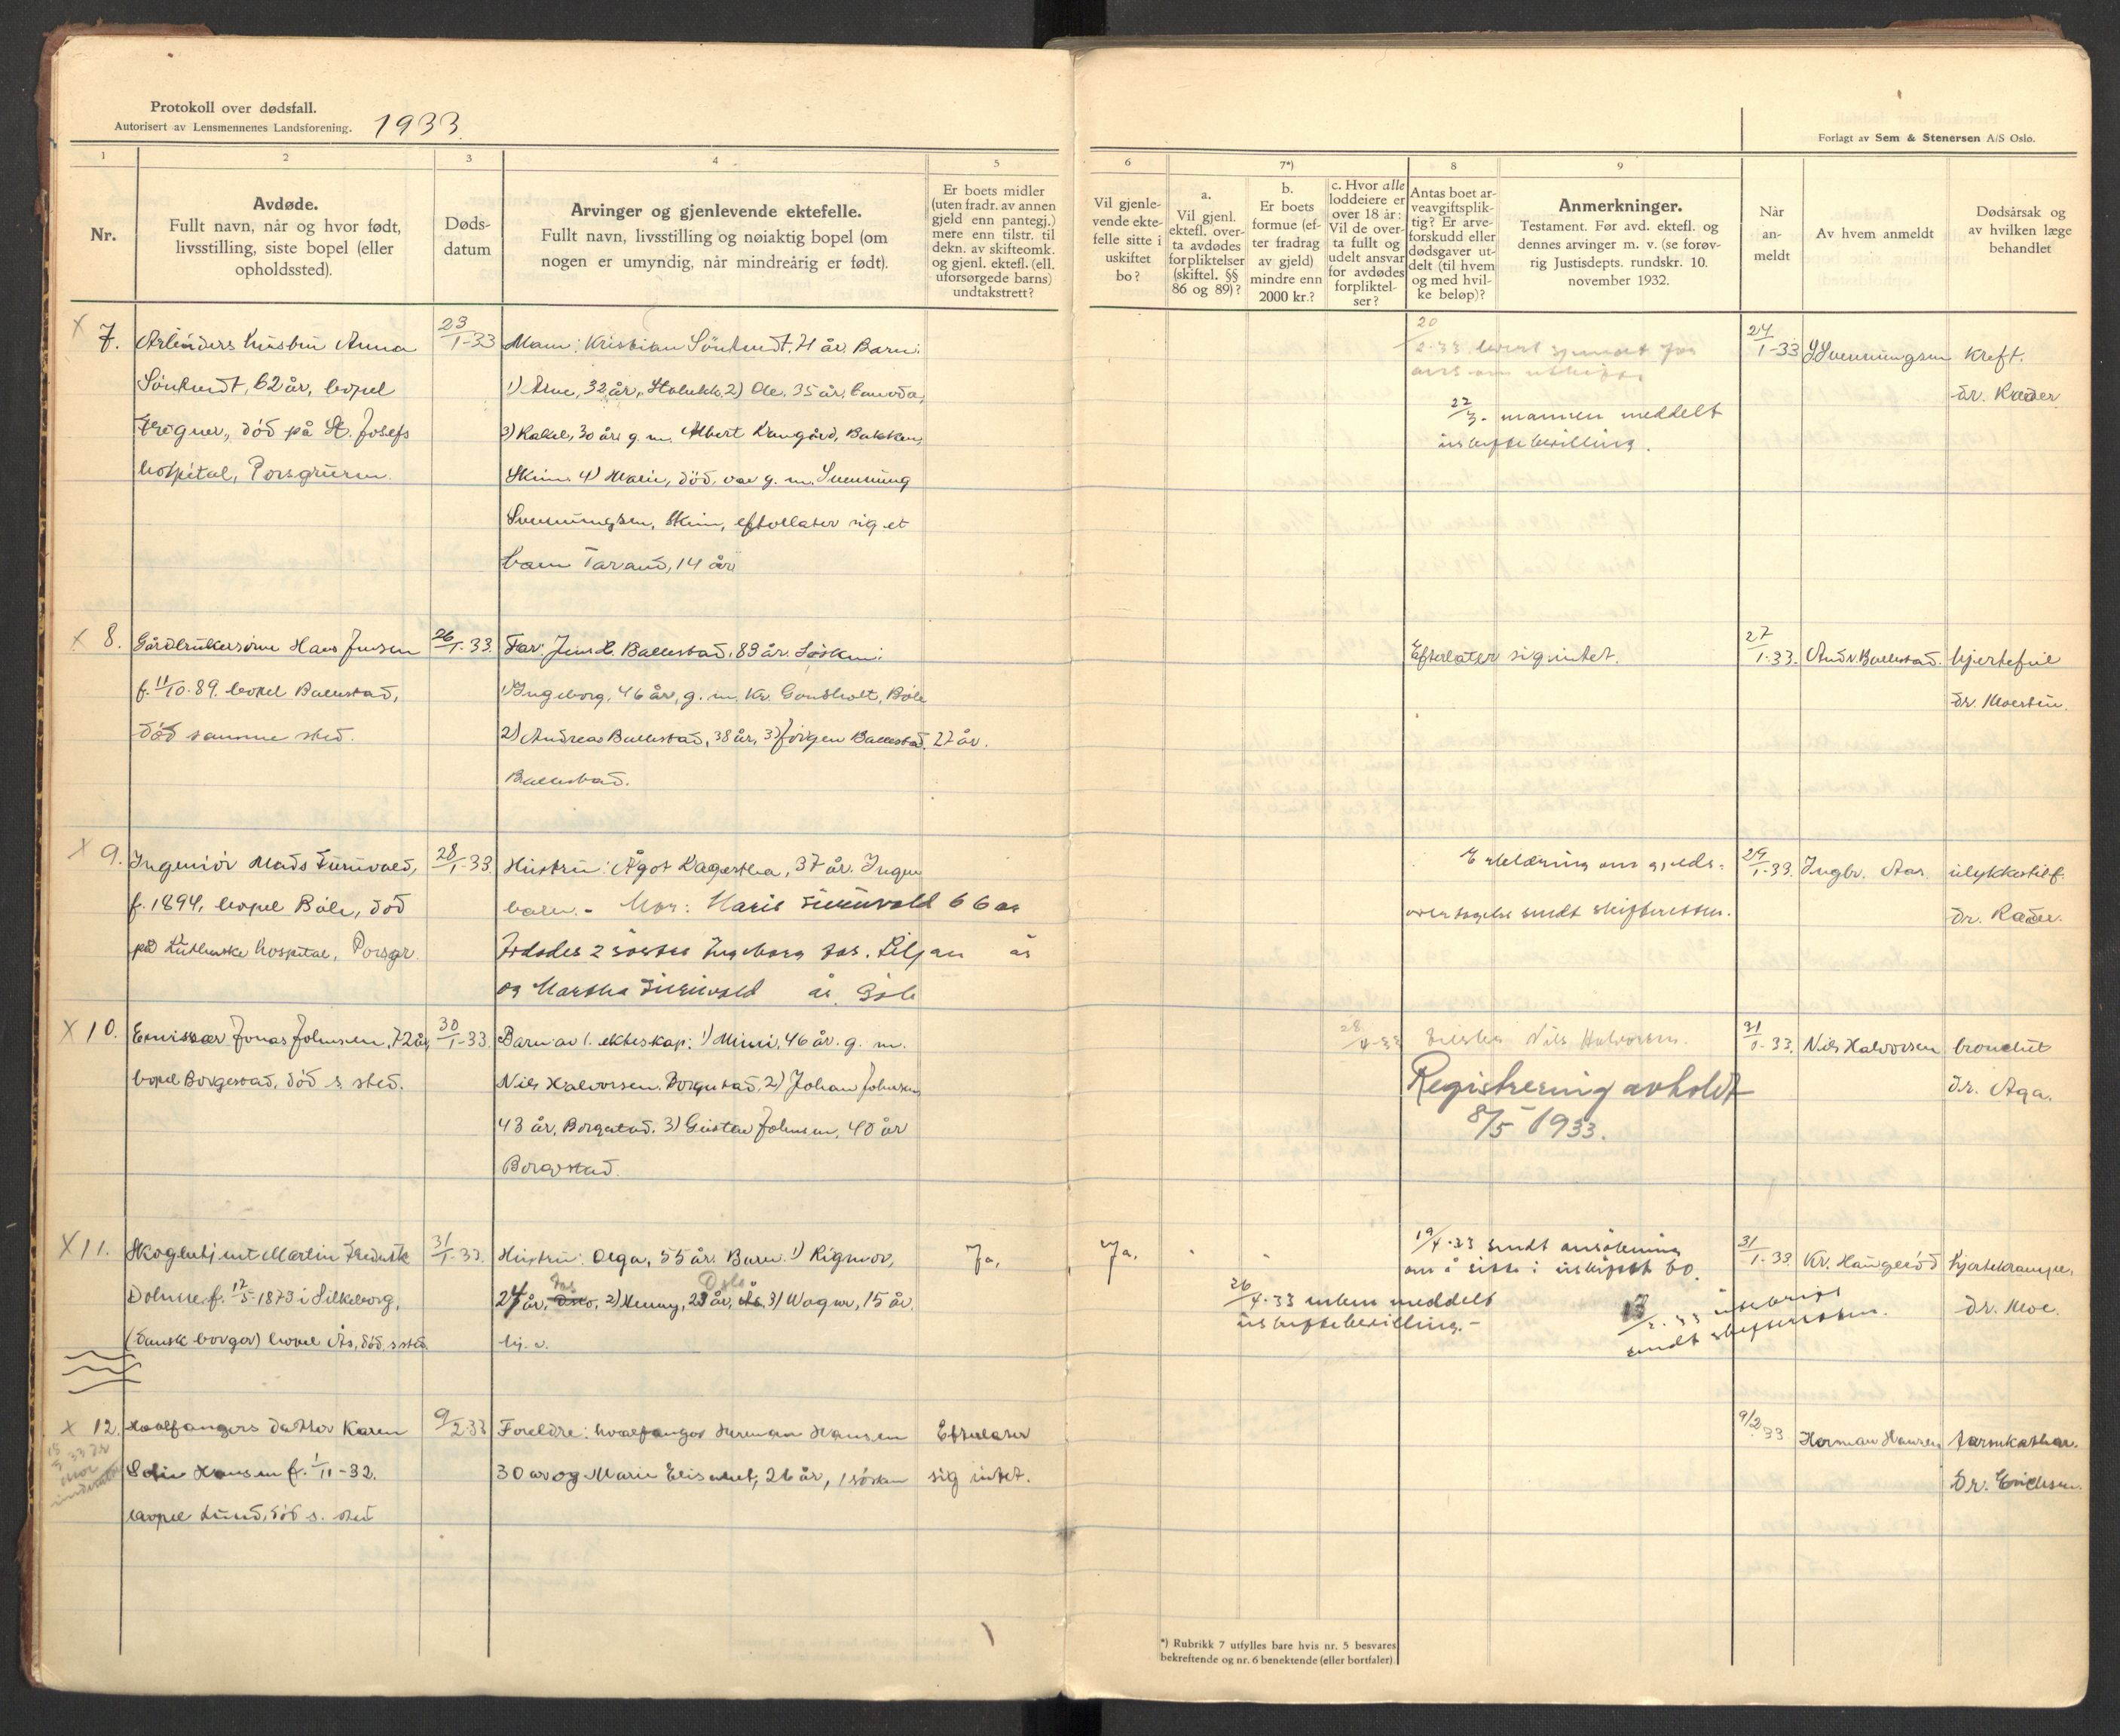 Protokoll over dødsfall.
Autorisert av Lensmennenes Landsforening. 1933.
Forlagt av Sem & Stenersen A/S Oslo.
1
Nr.
2
Avdøde.
Fullt navn, når og hvor født,
livsstilling, siste bopel (eller
opholdssted).
3
Døds-
datum
4
Arvinger og gjenlevende ektefelle.
Fullt navn, livsstilling og nøiaktig bopel (om
nogen er umyndig, når mindreårig er født).
5
Er boets midler
(uten fradr. av annen
gjeld enn pantegj.)
mere enn tilstr. til
dekn. av skifteomk.
og gjenl. ektefl. (ell.
uforsørgede barns)
undtakstrett?
6
Vil gjenle-
vende ekte-
felle sitte i
uskiftet
bo?
7*)
a.
Vil gjenl.
ektefl. over-
ta avdødes
forpliktelser
(skiftel. §§
86 og 89)?
b.
Er boets
formue (ef-
ter fradrag
av gjeld)
mindre enn
2000 kr.?
c. Hvor alle
loddeiere er
over 18 år:
Vil de over-
ta fullt og
udelt ansvar
for avdødes
forpliktel-
ser?
8
Antas boet ar-
veavgiftsplik-
tig? Er arve-
forskudd eller
dødsgaver ut-
delt (til hvem
og med hvil-
ke beløp)?
9
Anmerkninger.
Testament. Før avd. ektefl. og
dennes arvinger m. v. (se forøv-
rig Justisdepts. rundskr. 10.
november 1932.
Når
an-
meldt
Av hvem anmeldt
Dødsårsak og
av hvilken læge
behandlet
X 7.
Arbeiders hustru Anna
62 år, bopel
død på St. Josefs
hospital, Porsgrunn.
23/1-33
Mann: Kristian 71 år. Barn:
1) Arne, 32 år, 2) Ole, 35 år,
3) Rakel, 30 år, g. m. Albert Bakken,
Skien. 4) Marie, död, var g. m. Svenning
Svenningsen, Skien, efterlater sig et
barn 14 år
20/2-33
22/3- mannen meddelt
uskiftebevilling.
24/1-33
S Svenningsen
Kreft.
dr. Ræder
X 8.
Gårdbrukersönn Hans Jensen
f. 11/10-89, bopel Ballestad,
död samme sted.
26/1-33.
Far: Jens H. Ballestad, 83 år. Søsken:
1) Ingeborg, 46 år, g. m. Kr. Gonsholt, Bøle
2) Andreas Ballestad, 38 år, 3) Jörgen Ballestad, 27 år.
Ballestad.
Efterlater sig intet.
27/1-33.
Andr. Ballestad.
hjertefeil
X 9.
Ingeniör Mads Furuvald,
f. 1894, bopel Böle, död
på Lutherske hospital, Porsgr.
28/1-33.
Hustru: Ågot 37 år. Ingen
barn. - Mor: Maria Furuvald 66 år
2 søstre Ingeborg Siljan år
og Martha Furuvald år. Böle
Erklæring om gjelds-
overtagelse sendt skifteretten.
29/1-33.
Ingbr. Aas.
ulykkestilf.
dr. Ræder.
X 10.
Emissær Jonas Johnsen, 72 år,
bopel Borgestad, död s. sted.
30/1-33.
Barn av 1. ekteskap: 1) Mimi, 46 år. g. m.
Nils Halvorsen, Borgestad, 2) Johan Johnsen,
43 år, Borgestad. 3) Gustav Johnsen, 40 år
Borgestad.
28/4-33
Nils Halvorsen.
Registrering avholdt
8/5 1933.
31/1-33.
Nils Halvorsen
bronchit
dr. Aga.
X 11.
Skogbetjent Martin Fredrik
f. 17/5-1873 i Silkeborg,
(dansk borger) bopel Ås, död s. sted.
31/1-33.
Hustru: Olga, 55 år. Barn: 1) Rigmor,
24 år, Oslo, 2) Henny, 23 år, Oslo 3) Wagner, 15 år,
Ja,
Ja.
26/4-33 enken meddelt
uskiftebevilling.-
19/4-33 sendt ansökning
om å sitte i uskiftet bo.
sendt skifteretten.
31/1-33.
Kr. Haugeröd
hjertekrampe,
dr. Moe.
X 12.
Hvalfangers datter Karen
Sofie Hansen f. 1/11-32.
bopel Lund, död s. sted
9/2-33
Foreldre: hvalfanger Herman Hansen
30 år og Marie Elisabet, 26 år, 1 sösken
Efterlater
sig intet.
9/2-33
Herman Hansen
tarmkatharr.
Dr. Erichsen.
*) Rubrikk 7 utfylles bare hvis nr. 5 besvares
bekreftende og nr. 6 benektende (eller bortfaler).